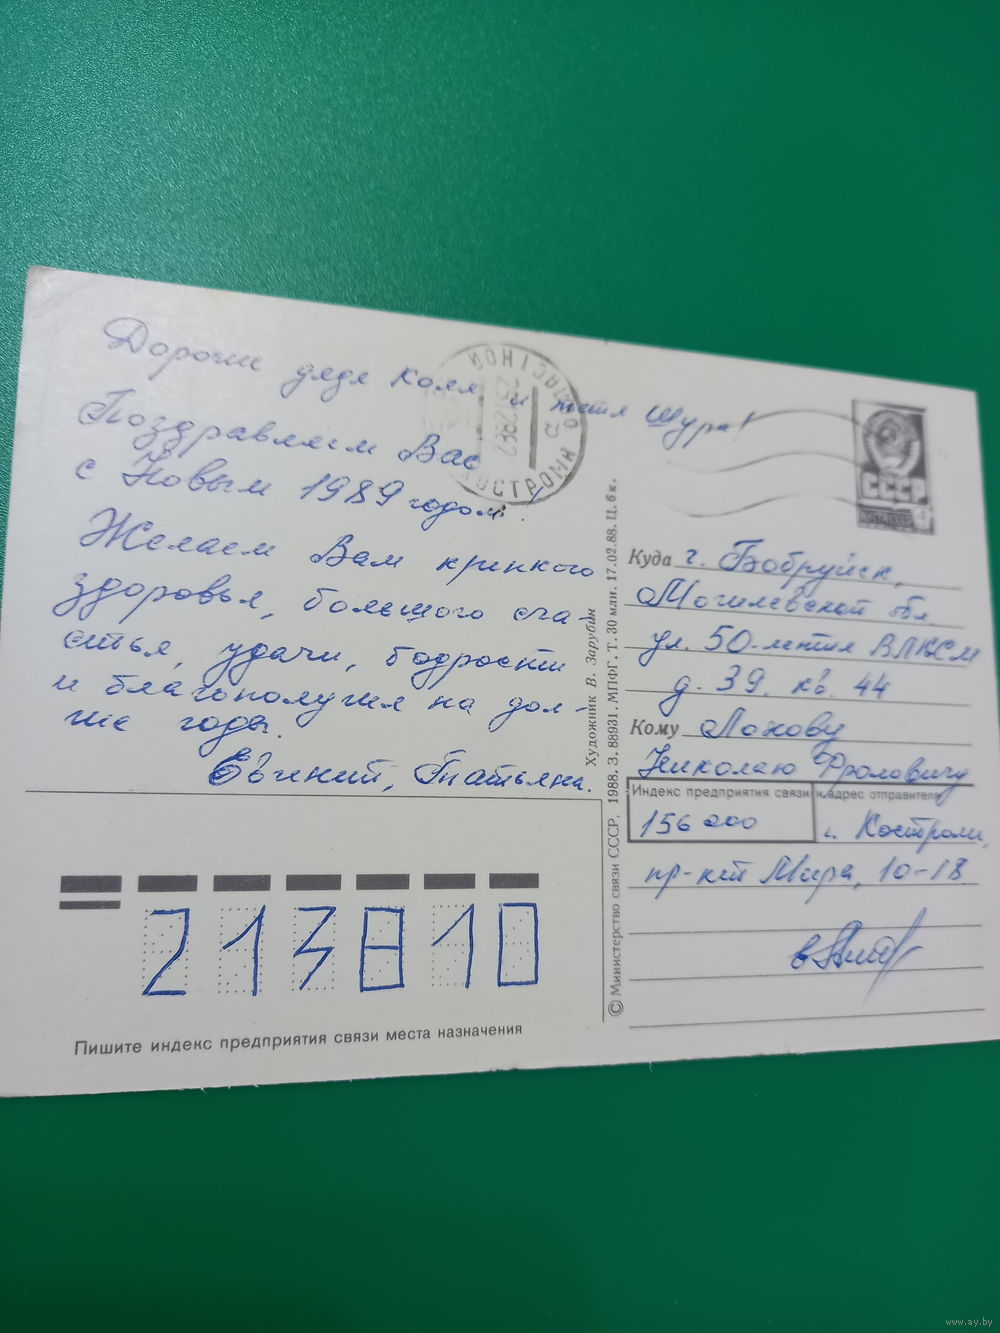 Дорогие дядя Коля и тетя Шура!
Поздравляем Вас
с Новым 1989 годом!
Желаем Вам крепкого
здоровья, большого сча-
стья, удачи, бодрости
и благополучия на дол-
гие годы.
Евгений, Татьяна.
КОСТРОМА
СССР
Куда г. Бобруйск,
Могилевской обл.
ул. 50-летия ВЛКСМ
д. 39, кв. 44
Кому Лохову
Николаю Фроловичу
Индекс предприятия связи и адрес отправителя
156000 г. Кострома,
пр-кт Мира, 10-18
Художник В. Зарубин
© Министерство связи СССР. 1988. З. 88931. МПФГ. Т. 30 млн. 17.02.88. Ц. 6 к.
213810
Пишите индекс предприятия связи места назначения
www.ay.by